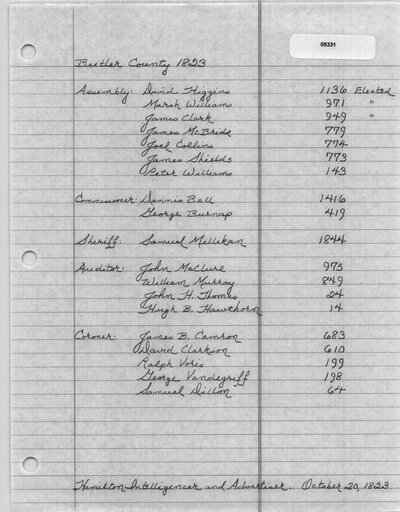 05331
Butler County 1823
Assembly: David Higgins 1136 Elected
Marsh Williams 971 "
James Clark 949 "
James McBride 779
Joel Collins 774
James Shields 773
Peter Williams 143
Commissioner: Dennis Ball 1416
George Burnap 419
Sheriff: Samuel Millikan 1844
Auditor: John McClure 975
William Murray 849
John H. Thomas 24
Hugh B. Hawthorn 14
Coroner: James B. Camron 683
David Clarkson 610
Ralph Voris 199
George Vandegriff 198
Samuel Dillon 64
Hamilton Intelligencer and Advertiser. October 20, 1823